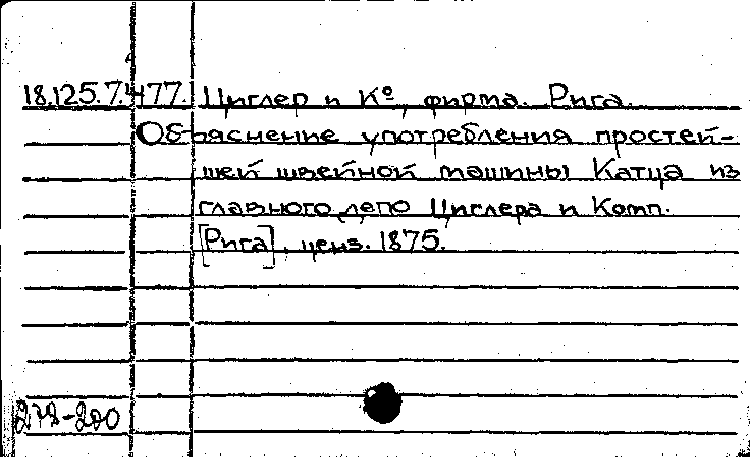 18.125.7.477. Циглер и К°, фирма. Рига.
Объяснение употребления простей-
шей швейной машины Катца из
главного депо Циглера и Комп.
[Рига], ценз. 1875.
278-200